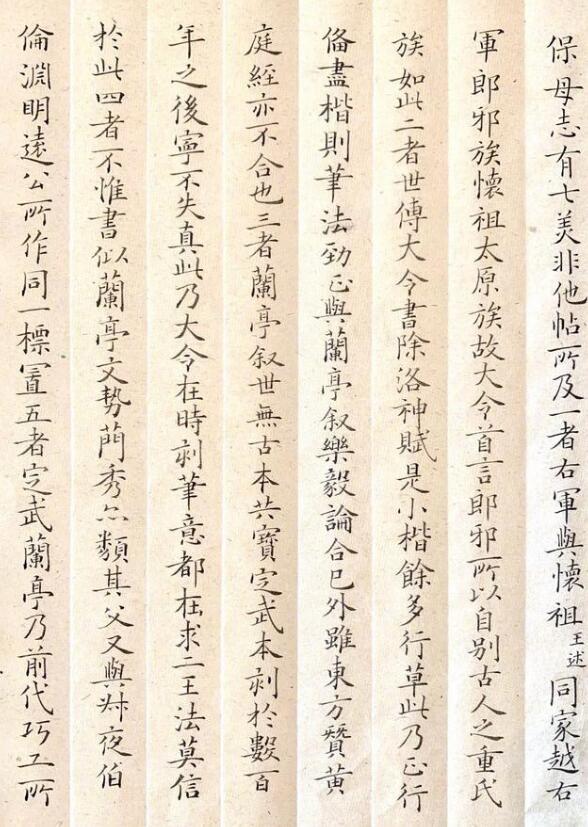 保母志有七美非他帖所及一者右軍與懷祖王述同家越右
軍郎邪族懷祖太原族故大令首言郎邪所以自别古人之重氏
族如此二者世傳大令書除洛神賦是小楷餘多行草此乃正行
俻盡楷則筆法勁正與蘭亭叙樂毅論合已外雖東方贊黃
庭經亦不合也三者蘭亭叙世無古本共寶定武本刻於數百
年之後寧不失真此乃大令在時刻筆意都在求二王法莫信
於此四者不惟書似蘭亭文勢簡秀亦類其父又與叔夜伯
倫淵明遠公所作同一標置五者定武蘭亭乃前代巧工所